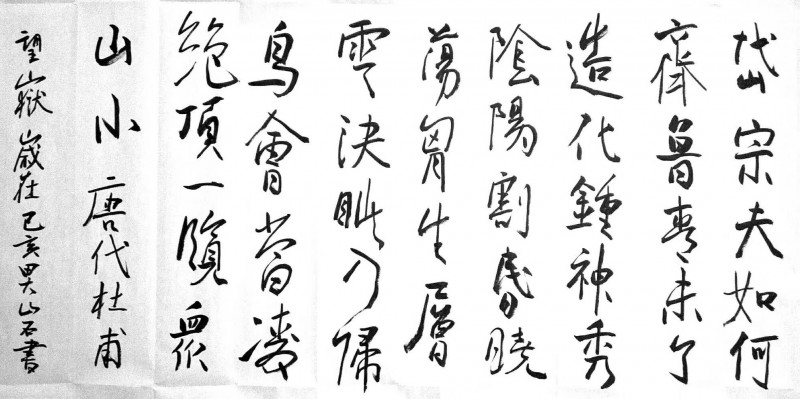 岱宗夫如何
齊魯青未了
造化鍾神秀
陰陽割昬曉
蕩胷生層
雲決眥入歸
鳥會當凌
絕頂一覽眾
山小唐代杜甫
望嶽歲在己亥山石書